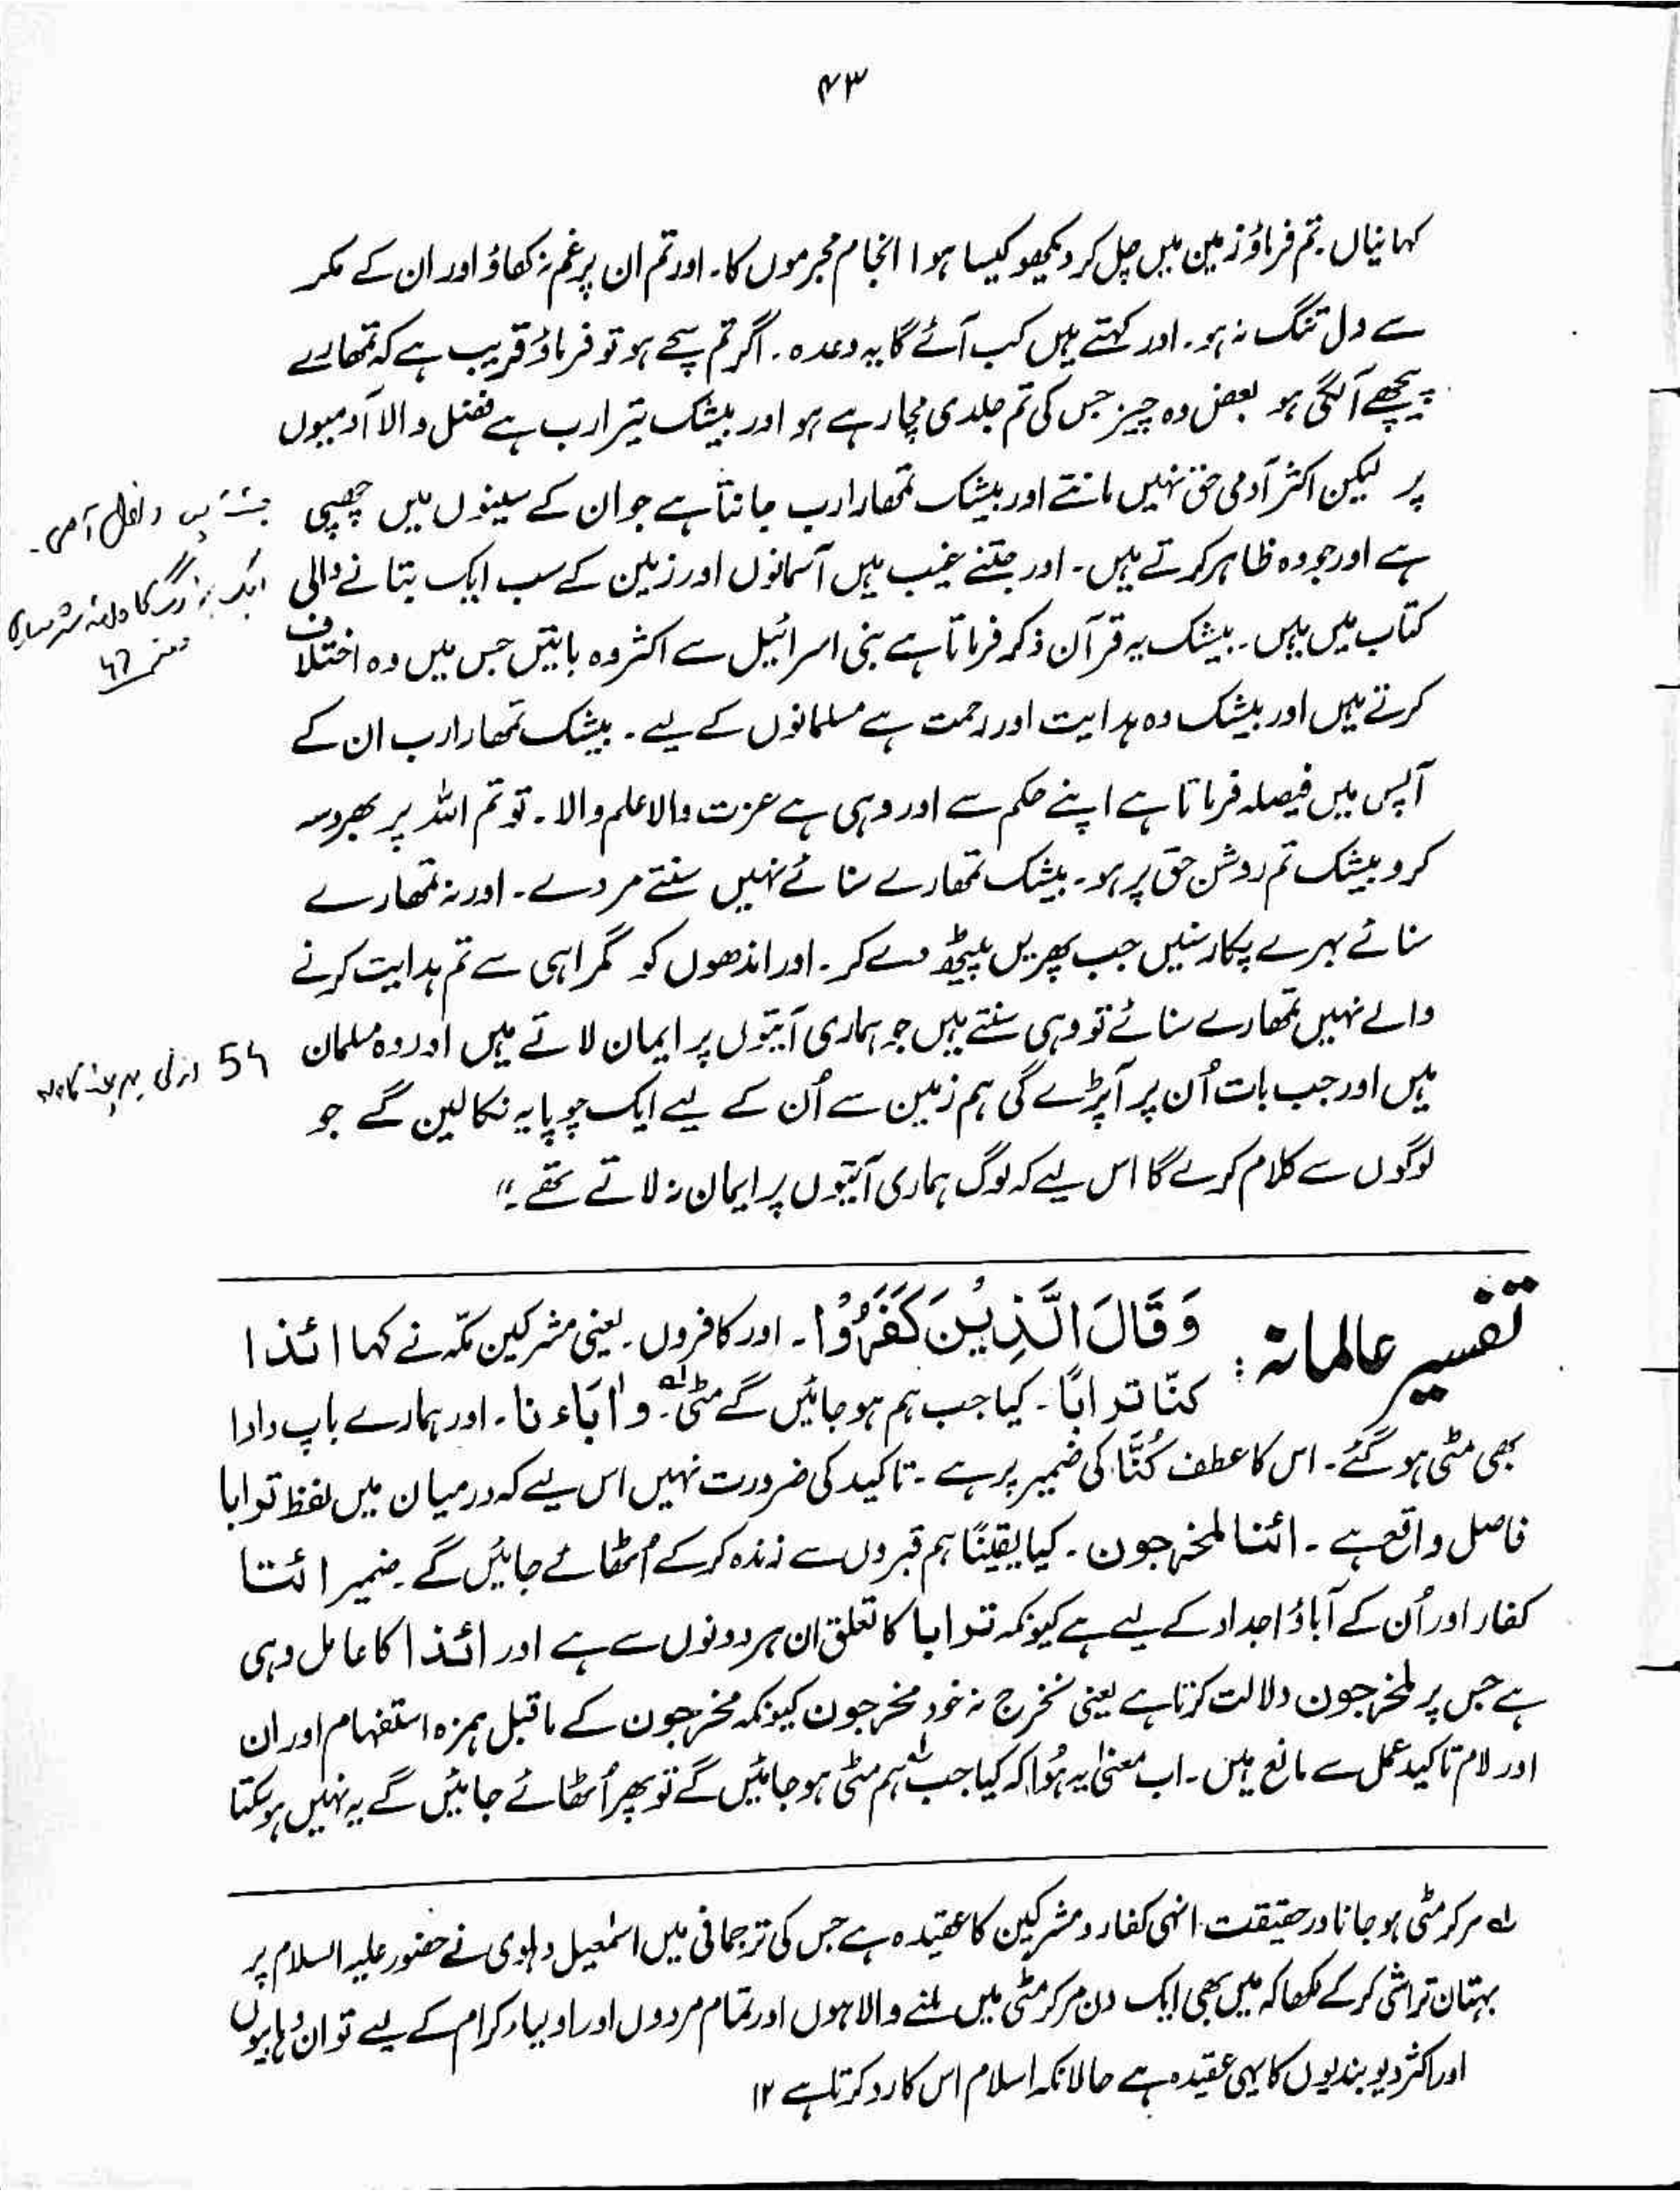 ۴۳
کہانیاں۔ تم فرماؤ زمین میں چل کر دیکھو کیسا ہوا انجام مجرموں کا۔ اور تم ان پر غم نہ کھاؤ اور ان کے مکر
سے دل تنگ نہ ہو۔ اور کہتے ہیں کب آئے گا یہ وعدہ۔ اگر تم سچے ہو تو فرماؤ قریب ہے کہ تمھارے
پیچھے آلگی ہو بعض وہ چیز جس کی تم جلدی مچا رہے ہو اور بیشک تیرا رب ہے فضل والا آدمیوں
پر لیکن اکثر آدمی حق نہیں مانتے اور بیشک تمھارا رب جانتا ہے جو ان کے سینوں میں چھپی
ہے اور جو وہ ظاہر کرتے ہیں۔ اور جتنے غیب ہیں آسمانوں اور زمین کے سب ایک بتانے والی
ایک بزرگ کا
کتاب میں ہیں۔ بیشک یہ قرآن ذکر فرماتا ہے بنی اسرائیل سے اکثر وہ باتیں جس میں وہ اختلاف
کرتے ہیں اور بیشک وہ ہدایت اور رحمت ہے مسلمانوں کے لیے۔ بیشک تمھارا رب ان کے
آپس میں فیصلہ فرماتا ہے اپنے حکم سے اور وہی ہے عزت والا علم والا۔ تو تم اللہ پر بھروسہ
کرو بیشک تم روشن حق پر ہو۔ بیشک تمھارے سنائے نہیں سنتے مردے۔ اور نہ تمھارے
سنائے بہرے پکار سنیں جب پھریں پیٹھ دے کر۔ اور اندھوں کو گمراہی سے تم ہدایت کرنے
والے نہیں تمھارے سنائے تو وہی سنتے ہیں جو ہماری آیتوں پر ایمان لاتے ہیں اور وہ مسلمان
ہیں اور جب بات اُن پر آپڑے گی ہم زمین سے اُن کے لیے ایک چوپایہ نکالیں گے جو
لوگوں سے کلام کرے گا اس لیے کہ لوگ ہماری آیتوں پر ایمان نہ لاتے تھے۔"
تفسیر عالمانہ: وَقَالَ الَّذِیْنَ کَفَرُوْا۔ اور کافروں۔ یعنی مشرکین مکّہ نے کہا ائذا
کنّا ترابًا۔ کیا جب ہم ہو جائیں گے مٹی لہ۔ و اٰبَاءنا۔ اور ہمارے باپ دادا
بھی مٹی ہو گئے۔ اس کا عطف کُنَّا کی ضمیر پر ہے۔ تاکید کی ضرورت نہیں اس لیے کہ درمیان میں لفظ ترابا
فاصل واقع ہے۔ ائنا لمخرجون۔ کیا یقینًا ہم قبروں سے زندہ کر کے اُٹھائے جائیں گے۔ ضمیر ائنا
کفار اور اُن کے آباؤ اجداد کے لیے ہے کیونکہ ترابا کا تعلق ان ہر دونوں سے ہے اور ائذا کا عامل وہی
ہے جس پر لمخرجون دلالت کرتا ہے یعنی نخرج نہ خود مخرجون کیونکہ مخرجون کے ماقبل ہمزہ استفہام اور ان
اور لام تاکید عمل سے مانع ہیں۔ اب معنیٰ یہ ہُوا کہ کیا جب لہ ہم مٹی ہو جائیں گے تو پھر اُٹھائے جائیں گے یہ نہیں ہو سکتا
لہ مر کر مٹی ہو جانا درحقیقت انہی کفار و مشرکین کا عقیدہ ہے جس کی ترجمانی میں اسمٰعیل دہلوی نے حضور علیہ السلام پر
بہتان تراشی کر کے لکھا کہ میں بھی ایک دن مر کر مٹی میں ملنے والا ہوں اور تمام مردوں اور اولیاء کرام کے لیے تو ان وہابیوں
اور اکثر دیوبندیوں کا یہی عقیدہ ہے حالانکہ اسلام اس کا رد کرتا ہے ۱۲